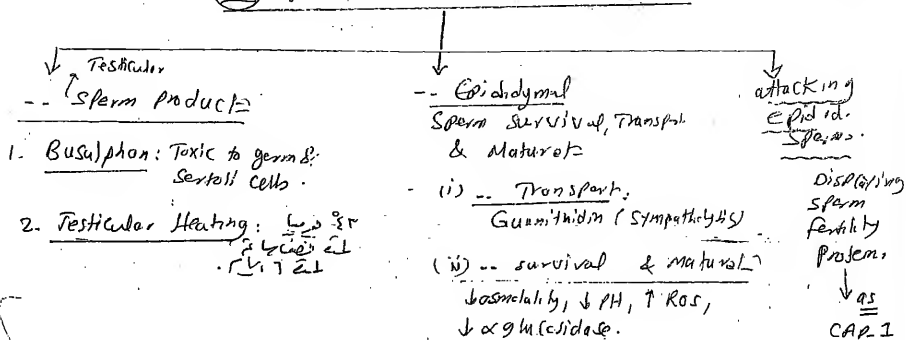 Testicular
-- Sperm product=
1. Busulphan: Toxic to germ &
Sertoli Cells.
2. Testicular Heating: ٤٣°
-- Epididymal
Sperm Survival, Transport
& Maturat=
(i) -- Transport:
Guanithidin (Sympatholytis)
(ii) -- survival & maturat=
↓osmolality, ↓ PH, ↑ ROS,
↓ α glucosidase.
attacking
epidid.
Sperms.
Displacing
sperm
fertility
Protein,
↓ as
CAP-1